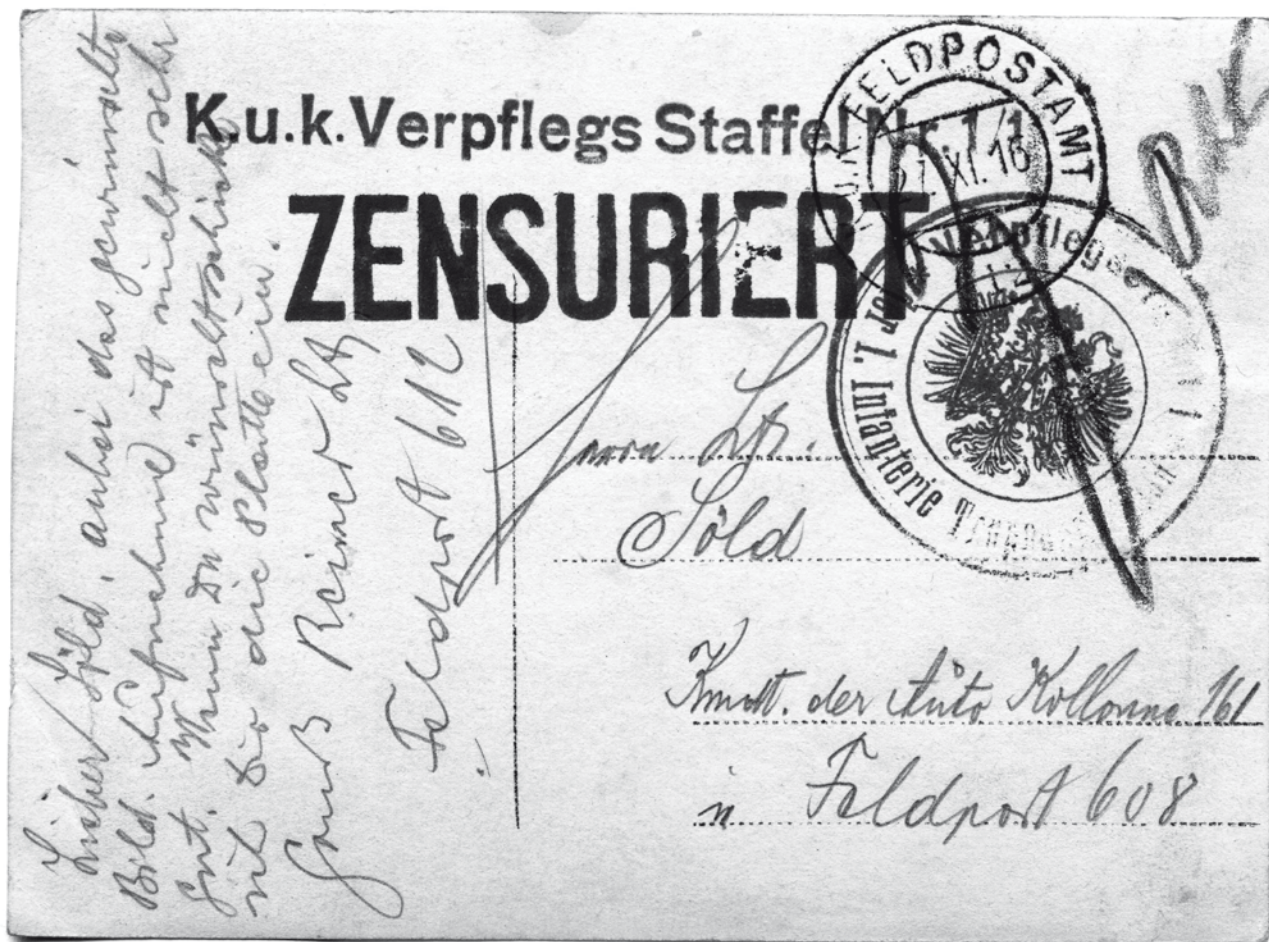 K.u.k. Verpflegs Staffel Nr. 1/1
ZENSURIERT
K.u.K. FELDPOSTAMT
XI. 16
Verpflegs
der 1. Infanterie Truppen
Lieber Söld, anbei das gewünschte
Bild. Aufnahme ist nicht sehr
gut. Wenn Du wünschst schicke
ich Dir die Platte ein.
Gruß Reiner Lt
Feldpost 612
Herrn Lt.
Söld
Kmdt. der Auto Kollonne 161
Feldpost 608